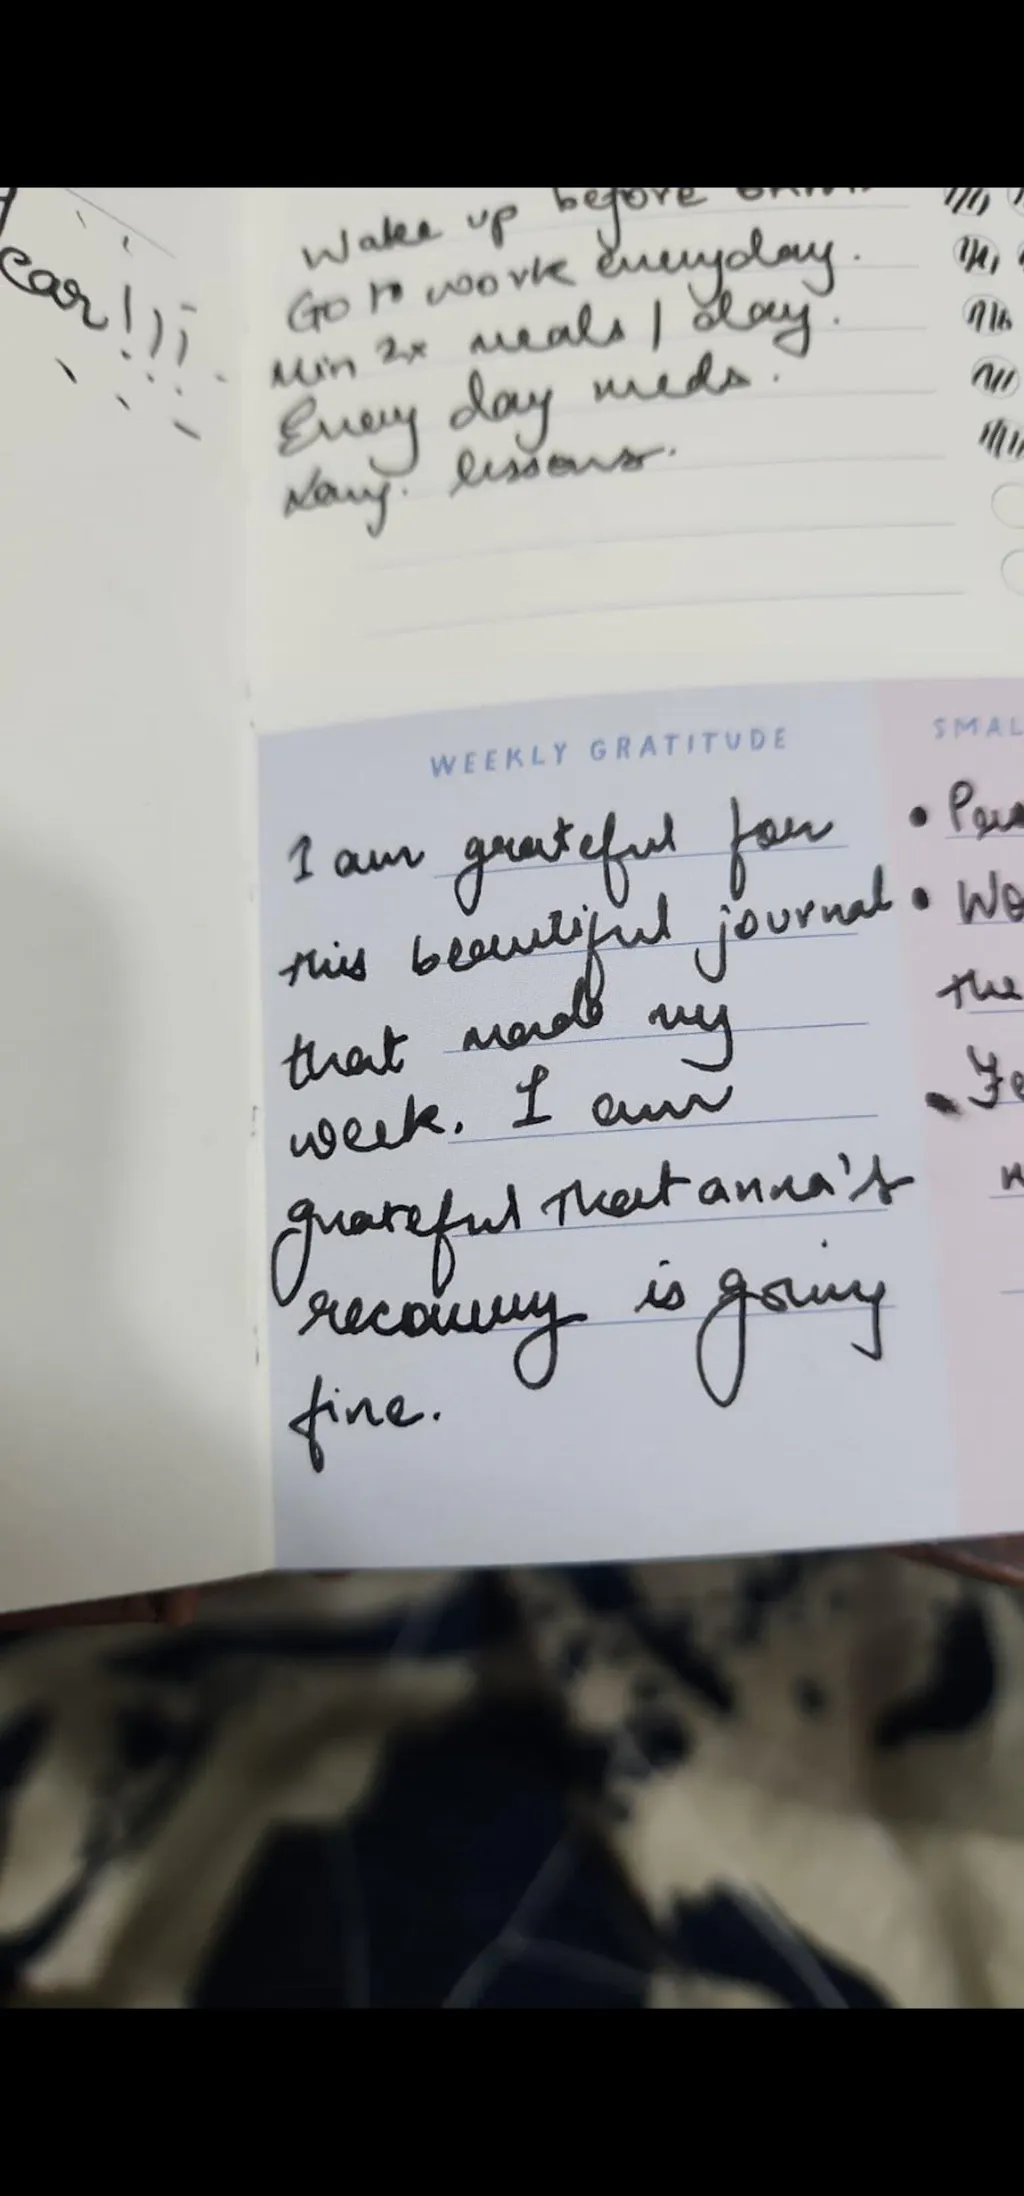 ear!!!
Wake up before
Go to work everyday.
Min 2x meals / day.
Every day meds.
lessons.
WEEKLY GRATITUDE
I am grateful for
this beautiful journal
that made my
week. I am
grateful that anna's
recovery is going
fine.
SMAL
•
• Wo
the
• Fe